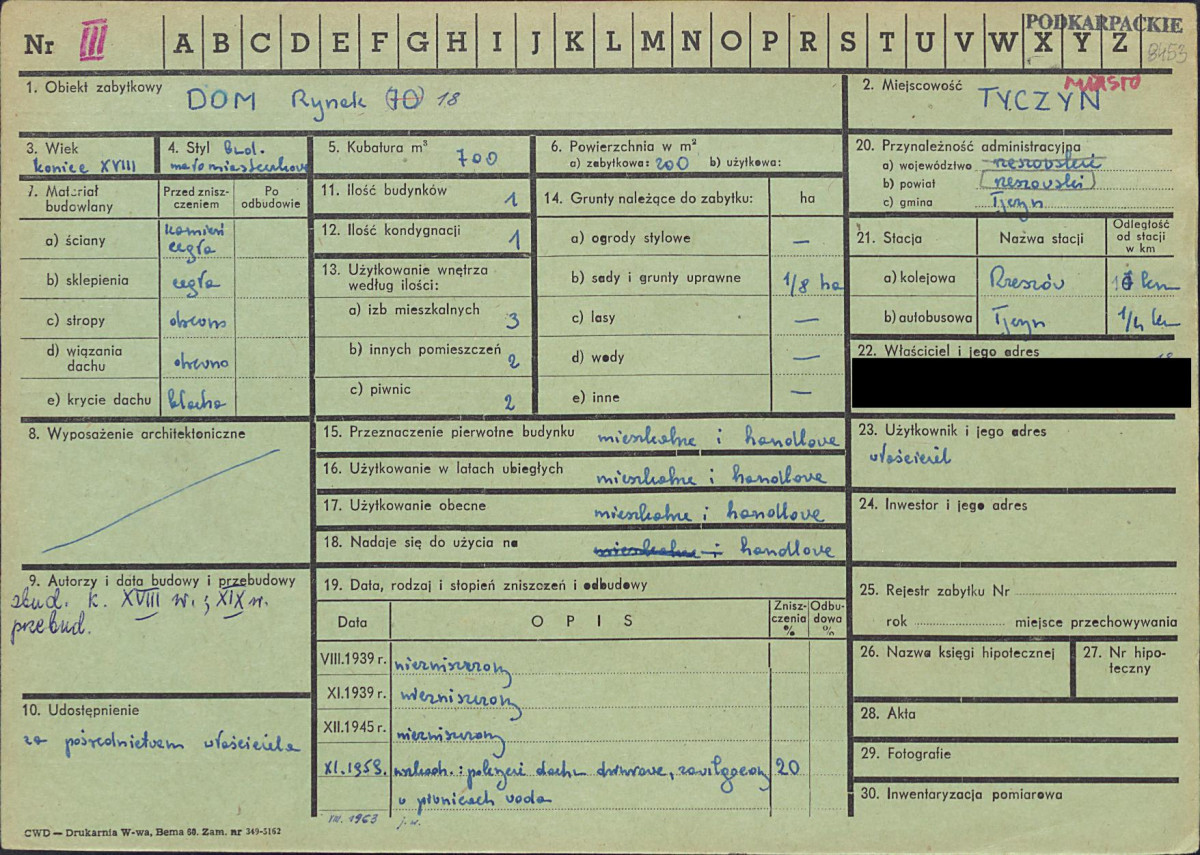 Nr III A B C D E F G H I J K L M N O P R S T U V W X Y Z
PODKARPACKIE
8453
1. Obiekt zabytkowy
DOM Rynek (70) 18
2. Miejscowość
miasto
TYCZYN
3. Wiek
koniec XVIII
4. Styl bud.
małomiasteczkowe
5. Kubatura m³ 700
6. Powierzchnia w m²
a) zabytkowa: 200 b) użytkowa:
20. Przynależność administracyjna
a) województwo rzeszowskie
b) powiat rzeszowski
c) gmina Tyczyn
7. Materiał budowlany
Przed zniszczeniem
Po odbudowie
a) ściany kamień cegła
b) sklepienia cegła
c) stropy drewno
d) wiązania dachu drewno
e) krycie dachu blacha
11. Ilość budynków 1
12. Ilość kondygnacji 1
13. Użytkowanie wnętrza
według ilości:
a) izb mieszkalnych 3
b) innych pomieszczeń 2
c) piwnic 2
14. Grunty należące do zabytku: ha
a) ogrody stylowe —
b) sady i grunty uprawne 1/8 ha
c) lasy —
d) wody —
e) inne —
21. Stacja Nazwa stacji
Odległość
od stacji
w km
a) kolejowa Rzeszów km
b) autobusowa Tyczyn 1/4 km
22. Właściciel i jego adres
8. Wyposażenie architektoniczne
15. Przeznaczenie pierwotne budynku mieszkalne i handlowe
16. Użytkowanie w latach ubiegłych mieszkalne i handlowe
17. Użytkowanie obecne mieszkalne i handlowe
18. Nadaje się do użycia na mieszkalne i handlowe
23. Użytkownik i jego adres
właściciel
24. Inwestor i jego adres
9. Autorzy i data budowy i przebudowy
zbud. k. XVIII w.; XIX w.
przebud.
10. Udostępnienie
za pośrednictwem właściciela
19. Data, rodzaj i stopień zniszczeń i odbudowy
Data OPIS
Zniszczenia %
Odbudowa %
VIII.1939 r. niezniszczony
XI.1939 r. niezniszczony
XII.1945 r. niezniszczony
XI.1959. uszkodz.: pokrycie dachu dziurawe, zawilgocony 20
w piwnicach woda
VII. 1963 j.w.
25. Rejestr zabytku Nr
rok miejsce przechowywania
26. Nazwa księgi hipotecznej
27. Nr hipoteczny
28. Akta
29. Fotografie
30. Inwentaryzacja pomiarowa
CWD — Drukarnia W-wa, Bema 60. Zam. nr 349-5162